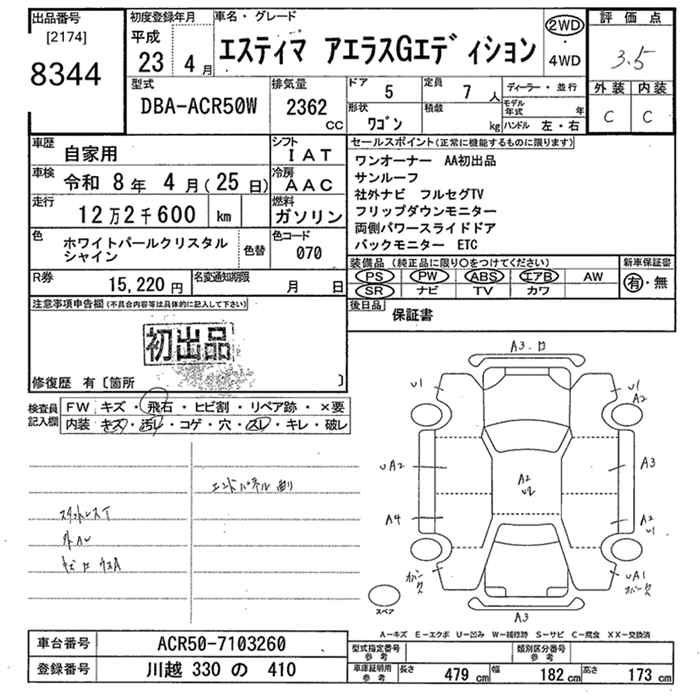 出品番号
[2174]
8344
初度登録年月
平成
23 4月
車名・グレード
エスティマ アエラスGエディション
2WD
・
4WD
評価点
3.5
外装 内装
C C
型式
DBA-ACR50W
排気量
2362
CC
ドア
5
定員
7人
形状
ワゴン
積載
kg
ディーラー・並行
モデル年式 年
ハンドル 左・右
車歴
自家用
シフト
IAT
車検
令和 8年 4月(25日)
冷房
AAC
走行
12万2千600 km
燃料
ガソリン
色
ホワイトパールクリスタル
シャイン
色替
色コード
070
R券
15,220円
名変通知期限
月 日
セールスポイント(正常に機能するものに限ります)
ワンオーナー AA初出品
サンルーフ
社外ナビ フルセグTV
フリップダウンモニター
両側パワースライドドア
バックモニター ETC
装備品(純正品に限り○をつけてください)
新車保証書
PS PW ABS エアB AW
SR ナビ TV カワ
有・無
後日品
保証書
注意事項申告欄(不具合内容等は具体的に記入して下さい)
初出品
修復歴 有〔箇所 〕
検査員
記入欄
FW キズ・飛石・ヒビ割・リペア跡・×要
内装 キズ・汚レ・コゲ・穴・スレ・キレ・破レ
A3
U1
U1
A2
UA2
A3
A2
U2
A4
A2
U1
UA1
A3
スペア
A−キズ E−エクボ U−凹み W−補修跡 S−サビ C−腐食 XX−交換済
車台番号
ACR50-7103260
登録番号
川越 330 の 410
型式指定番号
参考
類別区分番号
参考
車庫証明用
参考
長さ 479 cm 幅 182 cm 高さ 173 cm